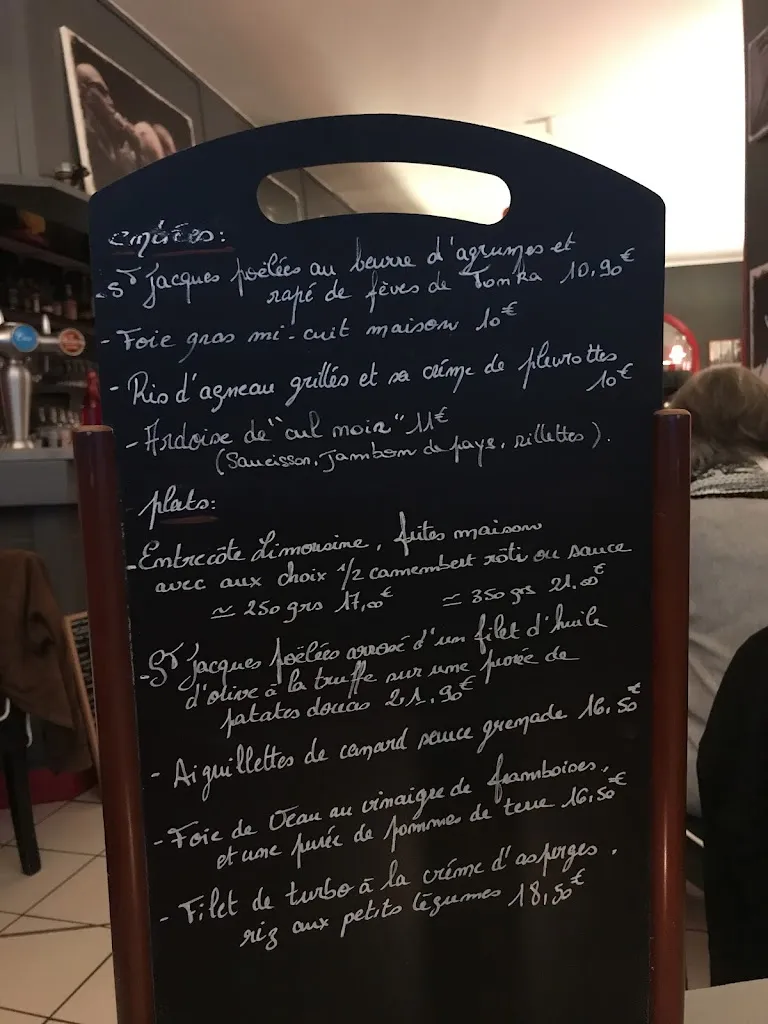 entrées:
- St Jacques poëlées au beurre d'agrumes et
rapé de fèves de Tonka 10,90€
- Foie gras mi-cuit maison 10€
- Ris d'agneau grillés et sa crème de pleurottes
10€
- Ardoise de "cul noir" 11€
(Saucisson, Jambon de pays, rillettes).
plats:
- Entrecôte Limousine, frites maison
avec aux choix 1/2 camembert rôti ou sauce
≃ 250 grs 17,00€ ≃ 350 grs 21.00€
- St Jacques poëlées arrosé d'un filet d'huile
d'olive à la truffe sur une purée de
patates douces 21,90€
- Aiguillettes de canard sauce grenade 16,50€
- Foie de Veau au vinaigre de framboises,
et une purée de pommes de terre 16,50€
- Filet de turbo à la crème d'asperges,
riz aux petits légumes 18,50€